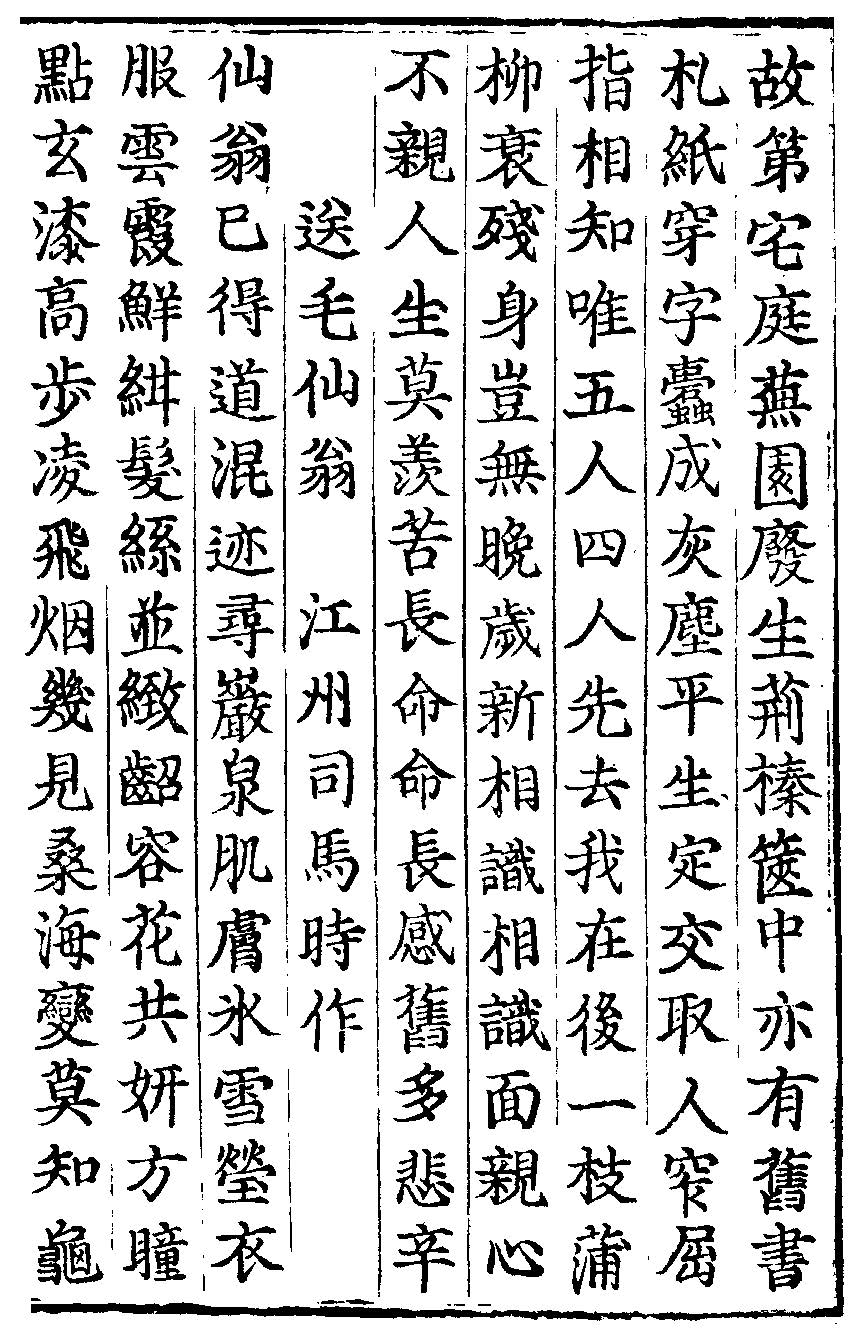 故第宅庭蕪園廢生荊榛篋中亦有舊書
札紙穿字蠹成灰塵平生定交取人窄屈
指相知唯五人四人先去我在後一枝蒲
柳衰殘身豈無晚歲新相識相識面親心
不親人生莫羨苦長命命長感舊多悲辛
送毛仙翁　江州司馬時作
仙翁已得道混迹尋巖泉肌膚氷雪瑩衣
服雲霞鮮紺髮絲並緻齠容花共妍方瞳
點玄漆高步凌飛烟幾見桑海變莫知龜